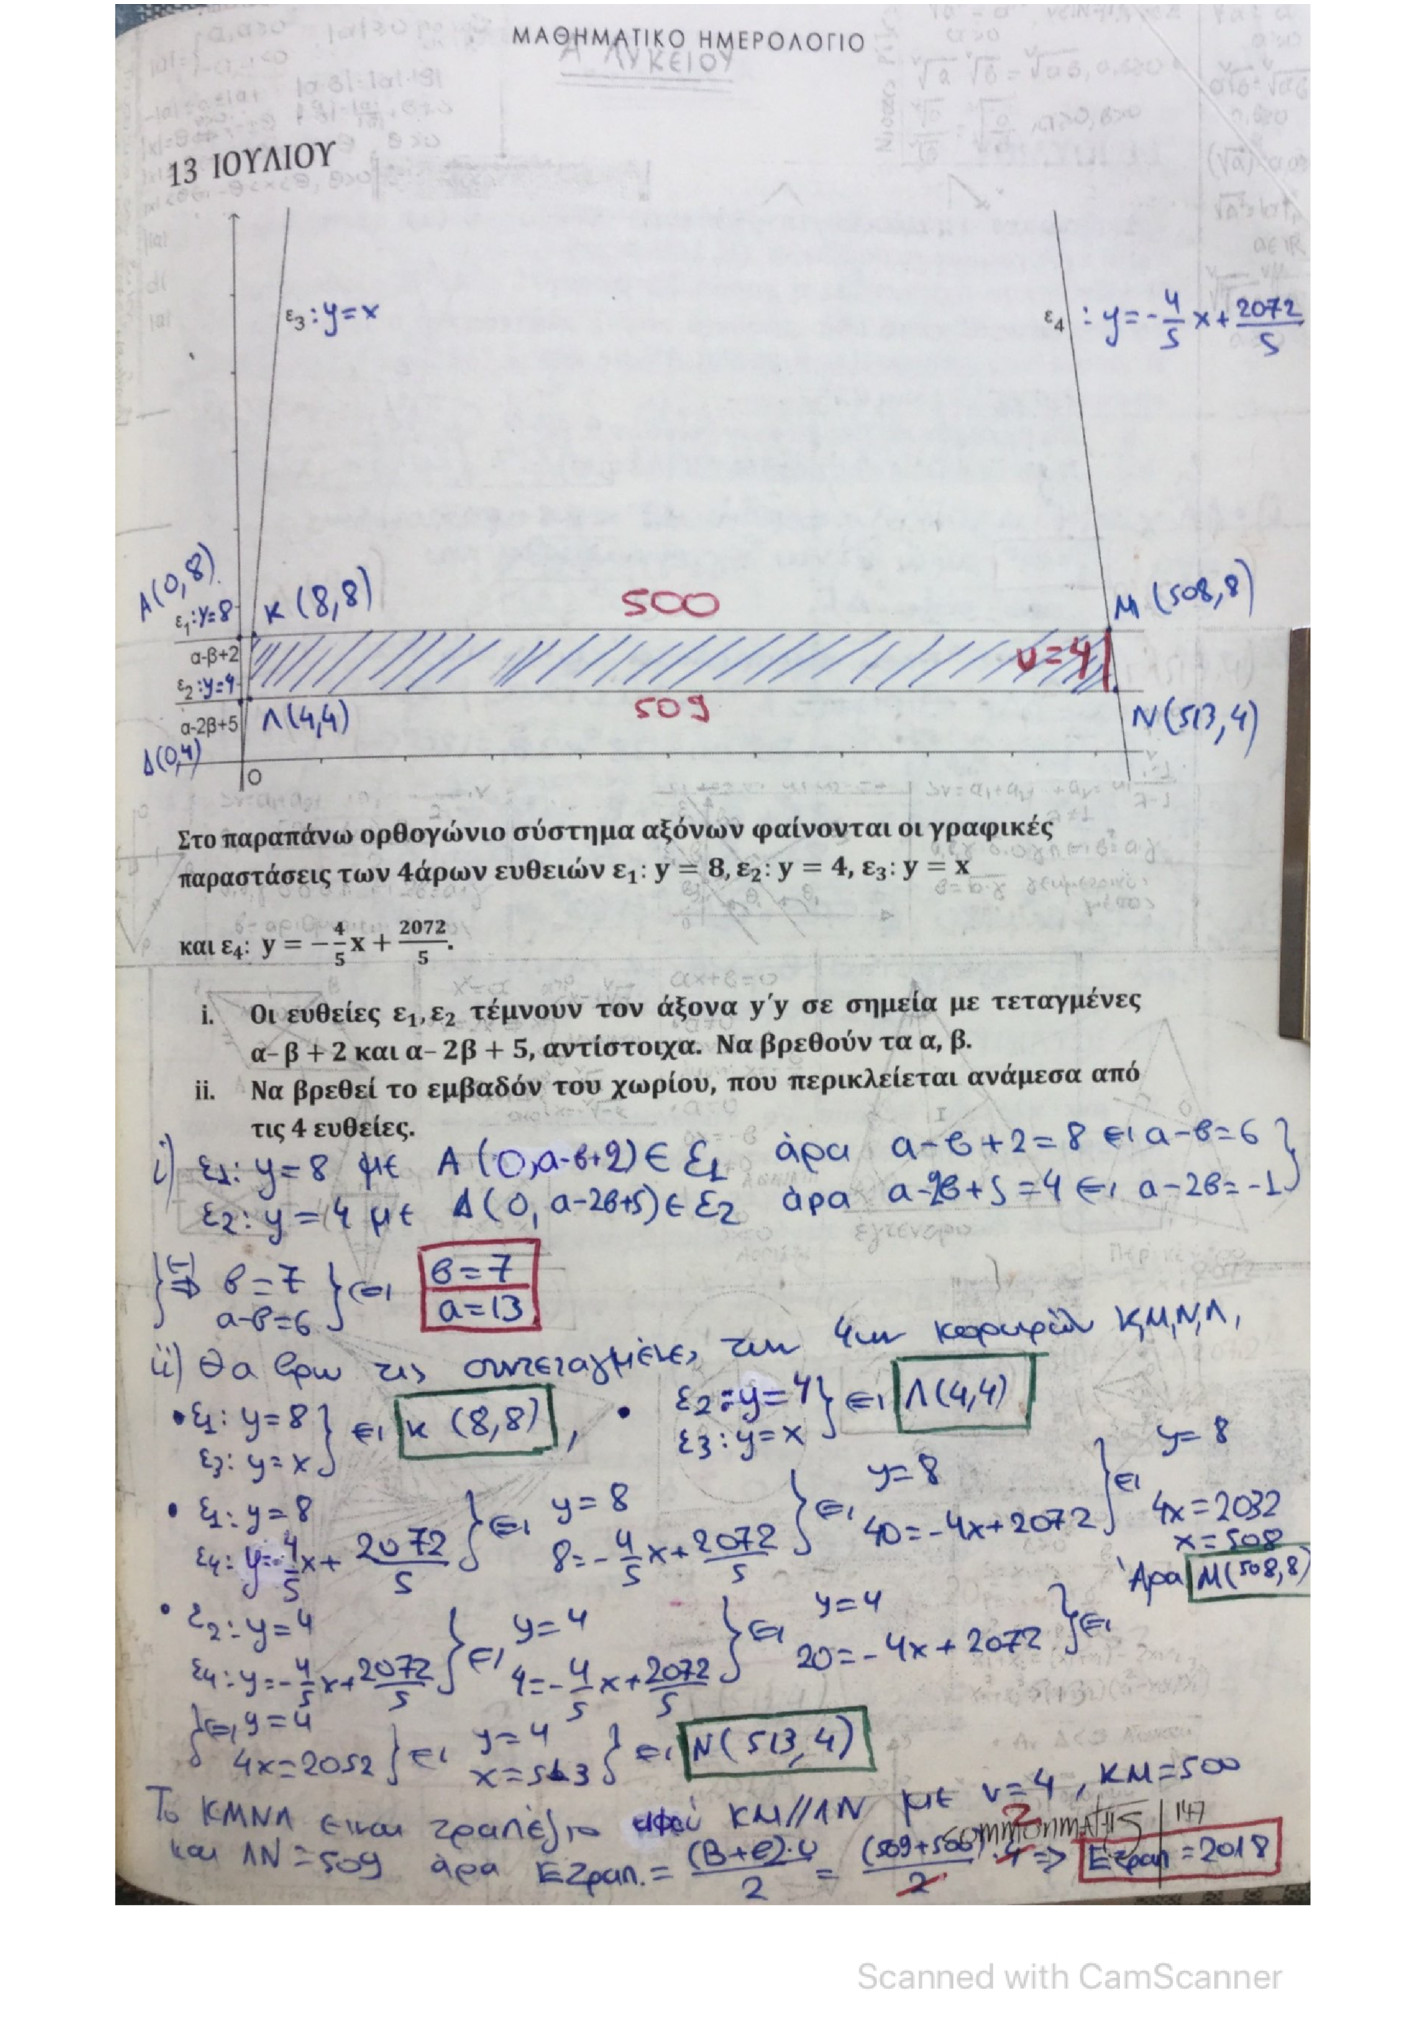 ΜΑΘΗΜΑΤΙΚΟ ΗΜΕΡΟΛΟΓΙΟ
Α ΛΥΚΕΙΟΥ
13 ΙΟΥΛΙΟΥ
ε3 : y=x
ε4 : y=-4/5 x+2072/5
Α(0,8)
ε1:y=8
K (8,8)
500
M (508,8)
α-β+2
ε2:y=4
υ=4
α-2β+5
Λ(4,4)
509
N(513,4)
Δ(0,4)
O
Στο παραπάνω ορθογώνιο σύστημα αξόνων φαίνονται οι γραφικές
παραστάσεις των 4άρων ευθειών ε1: y = 8, ε2: y = 4, ε3: y = x
και ε4: y = −4/5x + 2072/5.
i. Οι ευθείες ε1, ε2 τέμνουν τον άξονα y΄y σε σημεία με τεταγμένες
α– β + 2 και α– 2β + 5, αντίστοιχα. Να βρεθούν τα α, β.
ii. Να βρεθεί το εμβαδόν του χωρίου, που περικλείεται ανάμεσα από
τις 4 ευθείες.
i) ε1: y=8 με Α (0,α-β+2) ∈ ε1 άρα α-β+2=8 ⇔ α-β=6 }
ε2: y=4 με Δ(0, α-2β+5)∈ ε2 άρα α-2β+5=4 ⇔ α-2β=-1 }
} (-) ⇒ β=7 } ⇔ β=7
α-β=6 α=13
ii) Θα βρω τις συντεταγμένες των 4ων κορυφών Κ,Μ,Ν,Λ,
• ε1: y=8 } ⇔ K (8,8) , • ε2: y=4 } ⇔ Λ(4,4)
ε3: y=x ε3: y=x
• ε1: y=8 } ⇔ y=8 } ⇔ y=8 } ⇔ y=8
ε4: y=-4/5x+2072/5 8=-4/5x+2072/5 40=-4x+2072 4x=2032
x=508
Άρα M(508,8)
• ε2: y=4 } ⇔ y=4 } ⇔ y=4 } ⇔
ε4: y=-4/5x+2072/5 4=-4/5x+2072/5 20=-4x+2072
} ⇔ y=4 } ⇔ y=4 } ⇔ N(513,4)
4x=2052 x=513
Το ΚΜΝΛ είναι τραπέζιο αφού ΚΜ//ΛΝ με υ=4, ΚΜ=500
COMMONMATHS | 147
και ΛΝ=509 άρα Ετραπ.= (Β+β)·υ/2 = (509+500)·4/2 2 ⇒ Ετραπ=2018
Scanned with CamScanner